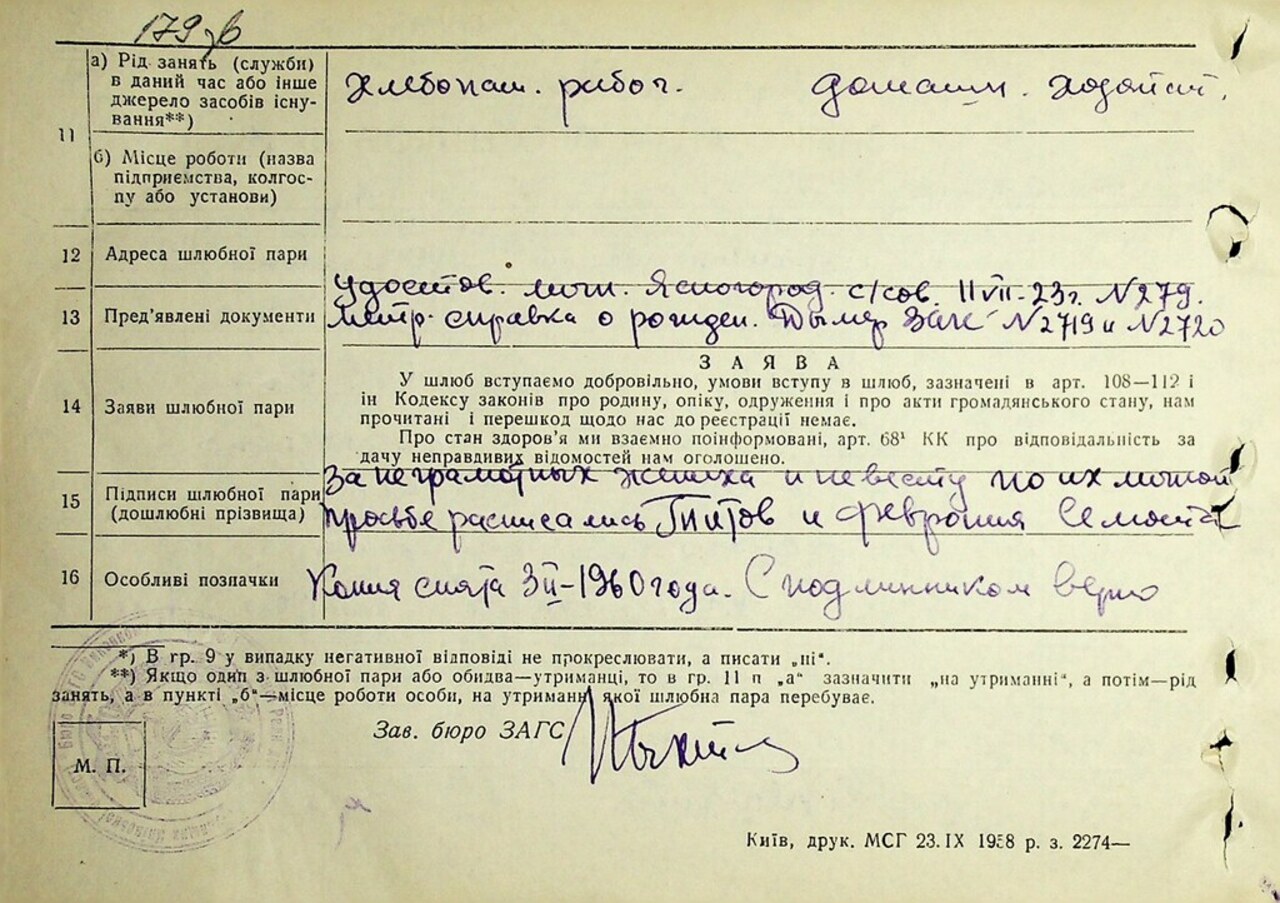 179 зв
11
а) Рід занять (служби)
в даний час або інше
джерело засобів існу-
вання**)
Хлебопаш. рабоч. Домашн. хозяйст.
б) Місце роботи (назва
підприємства, колгос-
пу або установи)
12 Адреса шлюбної пари
13 Пред’явлені документи
Удостов. личн. Ясногород. с/сов. 11 VII-23г. N279.
Метр. справка о рожден. Дымер ЗАГС N2719 и N2720
ЗАЯВА
14 Заяви шлюбної пари
У шлюб вступаємо добровільно, умови вступу в шлюб, зазначені в арт. 108—112 і
ін Кодексу законів про родину, опіку, одруження і про акти громадянського стану, нам
прочитані і перешкод щодо нас до реєстрації немає.
Про стан здоров’я ми взаємно поінформовані, арт. 68¹ КК про відповідальність за
дачу неправдивих відомостей нам оголошено.
15 Підписи шлюбної пари
(дошлюбні прізвища)
За неграмотных жениха и невесту по их личной
просьбе расписались Титов и Феврония
16 Особливі позначки
Копия снята 3 II-1960 года. С подлинником верно
*) В гр. 9 у випадку негативної відповіді не прокреслювати, а писати „ні“.
**) Якщо один з шлюбної пари або обидва—утриманці, то в гр. 11 п „а“ зазначити „на утриманні“, а потім—рід
занять, а в пункті „б“—місце роботи особи, на утриманні якої шлюбна пара перебуває.
Зав. бюро ЗАГС
М. П.
Київ, друк. МСГ 23.IX 1958 р. з. 2274—